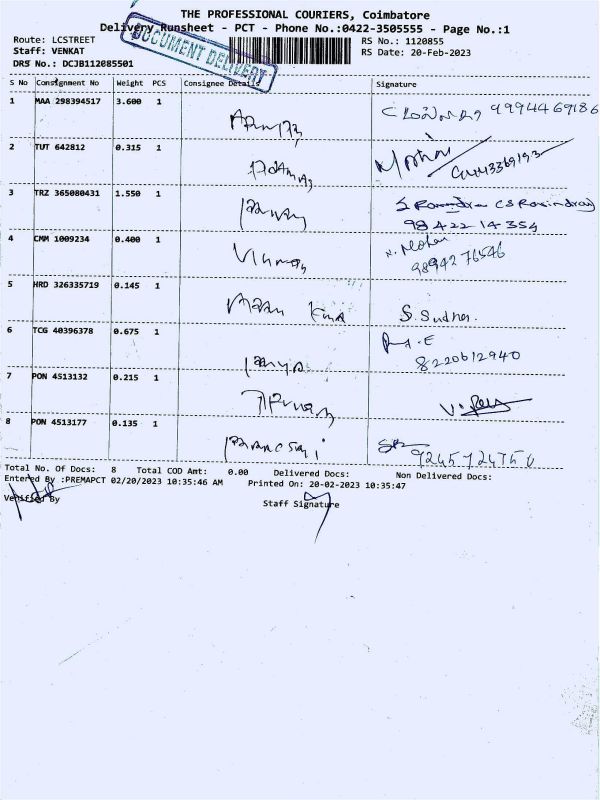 THE PROFESSIONAL COURIERS, Coimbatore
Delivery Runsheet - PCT - Phone No.:0422-3505555 - Page No.:1
Route: LCSTREET
RS No.: 1120855
Staff: VENKAT
RS Date: 20-Feb-2023
DRS No.: DCJB112085501
DOCUMENT DELIVERY
S No Consignment No Weight PCS Consignee Details Signature
1 MAA 298394517 3.600 1 9994469186
2 TUT 642812 0.315 1 Mohan
3 TRZ 365080431 1.550 1 S Ravindran (S Ravindran)
98 422-14 354
4 CMM 1009234 0.400 1 N. Mohan
9894276546
5 HRD 326335719 0.145 1 S. Sudha.
6 TCG 40396378 0.675 1
8220612940
7 PON 4513132 0.215 1
8 PON 4513177 0.135 1
9245724750
Total No. Of Docs: 8 Total COD Amt: 0.00 Delivered Docs: Non Delivered Docs:
Entered By :PREMAPCT 02/20/2023 10:35:46 AM Printed On: 20-02-2023 10:35:47
Verified By
Staff Signature